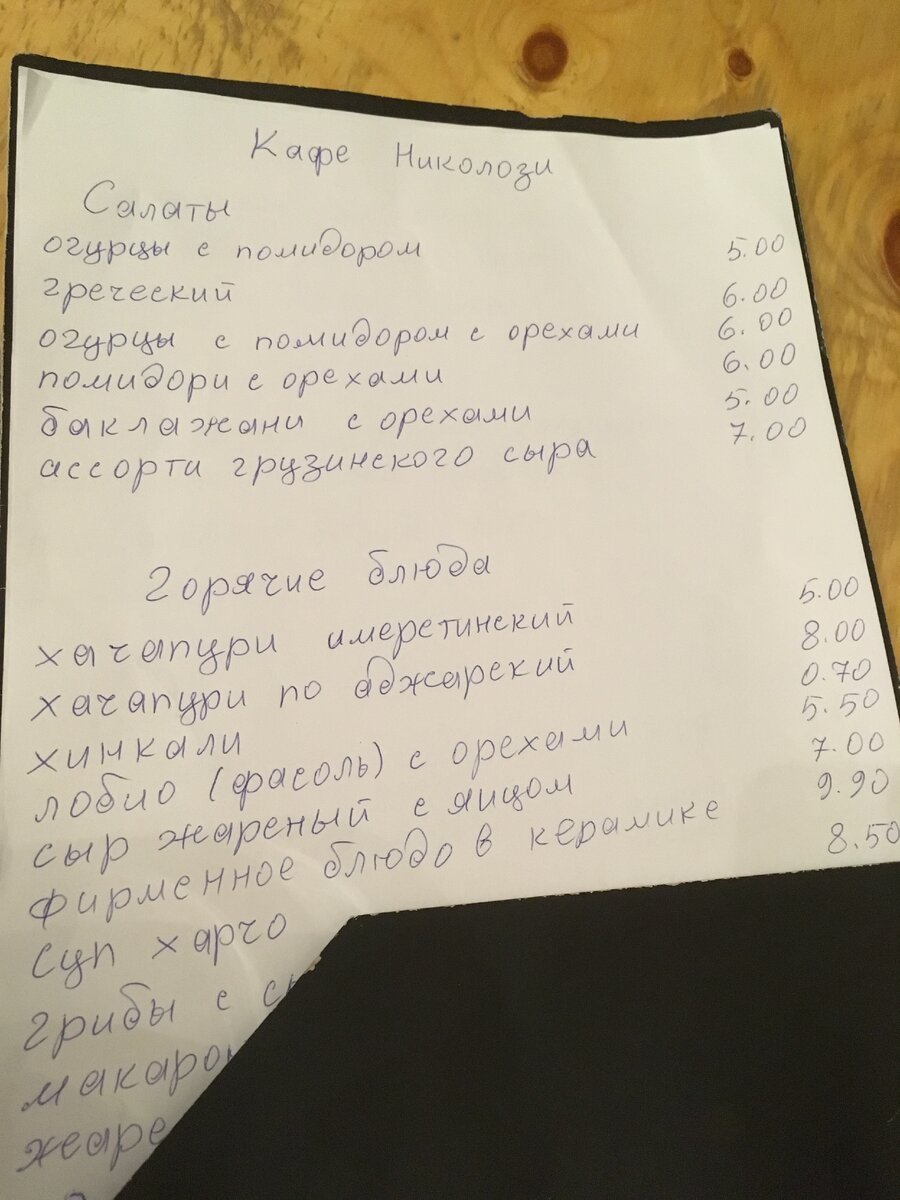 Кафе Николози
Салаты
огурцы с помидором 5.00
греческий 6.00
огурцы с помидором с орехами 6.00
помидори с орехами 6.00
баклажани с орехами 5.00
ассорти грузинского сыра 7.00
Горячие блюда
хачапури имеретинский 5.00
хачапури по аджарский 8.00
хинкали 0.70
лобио (фасоль) с орехами 5.50
сыр жареный с яицом 7.00
фирменное блюдо в керамике 9.90
суп харчо 8.50
грибы с
макаро
жаре